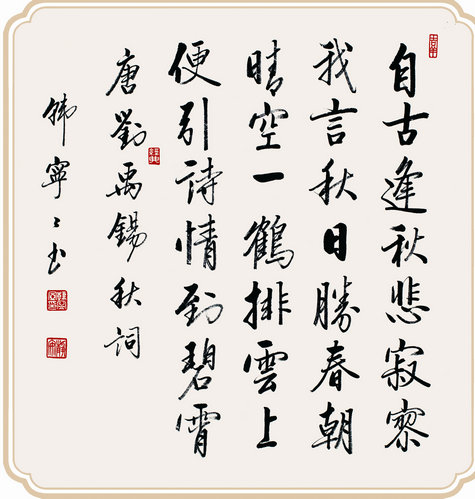 自古逢秋悲寂寥
我言秋日勝春朝
晴空一鶴排雲上
便引詩情到碧霄
唐劉禹錫秋詞